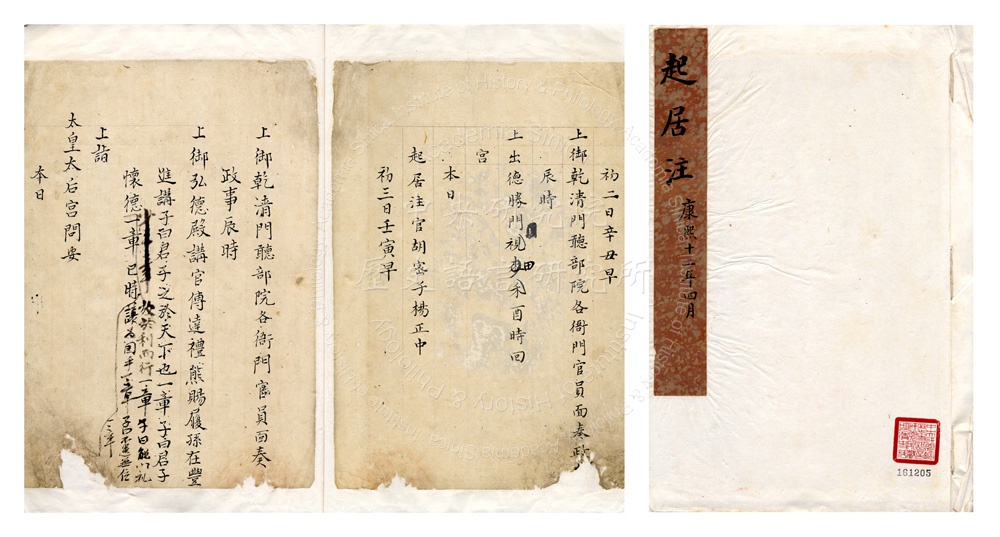 起居注
康熙十二年四月
161205
初二日辛丑早
上御乾清門聽部院各衙門官員面奏政
辰時
上出德勝門視禾酉時回
宮
本日
起居注官胡密子楊正中
初三日壬寅早
上御乾清門聽部院各衙門官員面奏
政事辰時
上御弘德殿講官傅達禮熊賜履孫在豐
進講子曰君子之於天下也一章子曰君子
懷德一章
放於利而行一章子曰能以礼
讓為國乎一章子曰不患無位
一章
巳時
上詣
太皇太后宮問安
本日